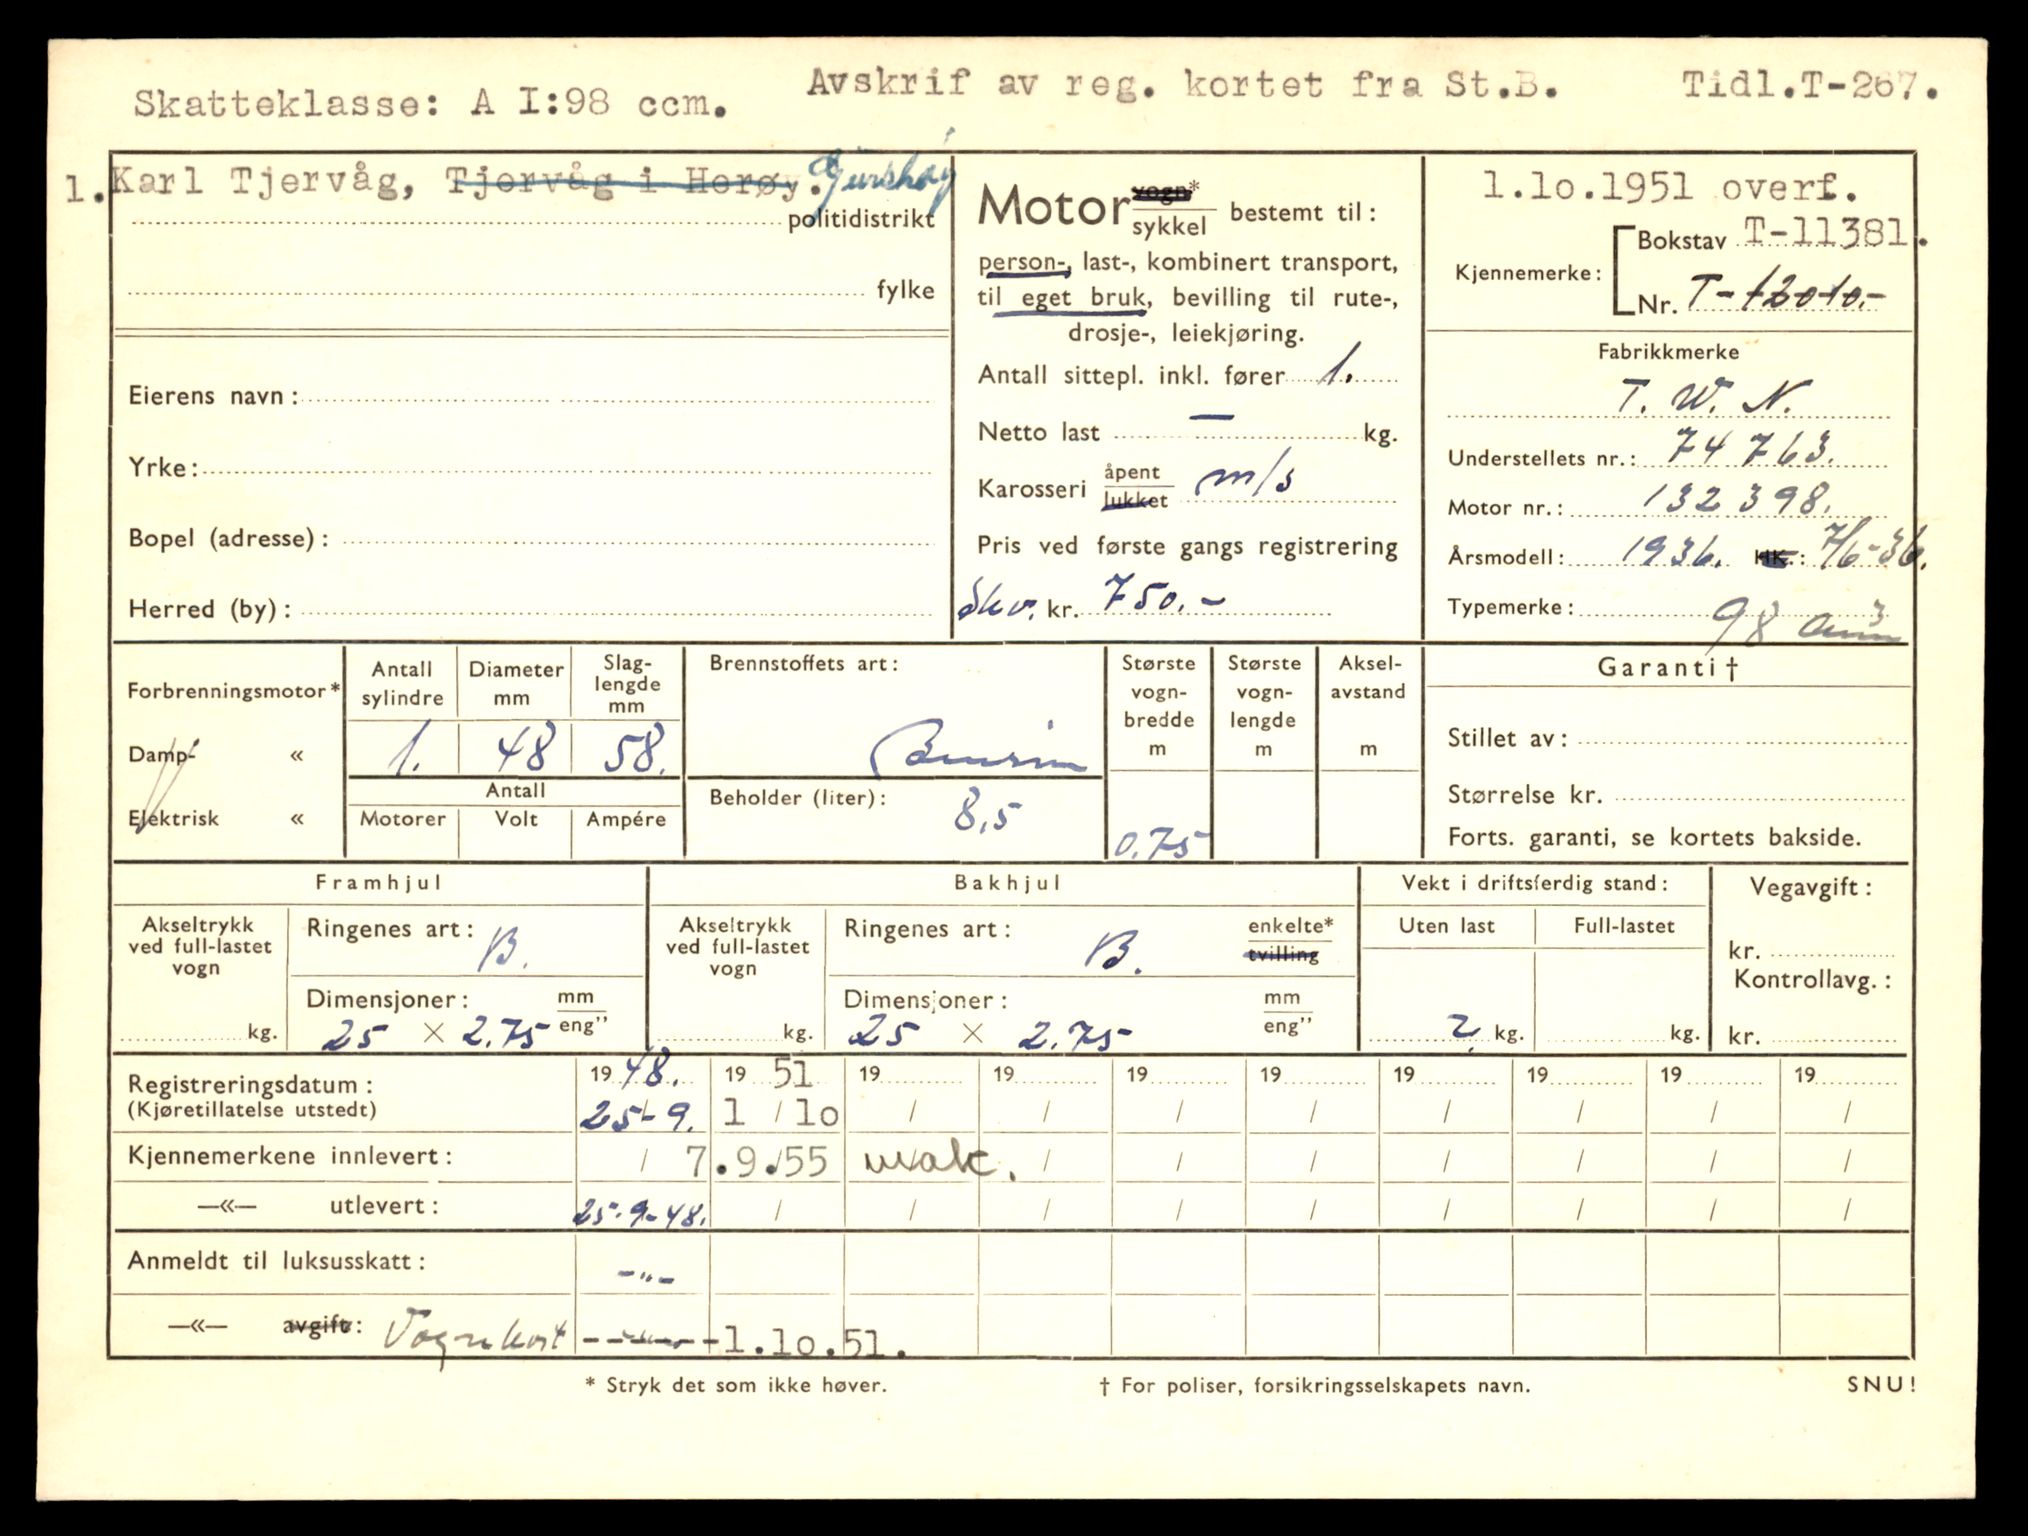 Skatteklasse: A I:98 ccm.
Avskrif av reg. kortet fra St.B.
Tidl.T-267.
1. Karl Tjervåg, Tjervåg i Herøy.
politidistrikt
fylke
Eierens navn :
Yrke :
Bopel (adresse) :
Herred (by) :
Motor vogn* sykkel bestemt til :
person-, last-, kombinert transport,
til eget bruk, bevilling til rute-,
drosje-, leiekjøring.
Antall sittepl. inkl. fører 1.
Netto last — kg.
Karosseri åpent lukket m/s
Pris ved første gangs registrering
Skv. kr. 750.-
1.10.1951 overf.
Kjennemerke : Bokstav T-11381.
Nr. T-12010.-
Fabrikkmerke
T. W. N.
Understellets nr. : 74763.
Motor nr. : 132398.
Årsmodell : 1936. HK. : 7/6-36.
Typemerke : 98 cm³
Forbrenningsmotor *
Damp- «
Elektrisk «
Antall sylindre
Diameter mm
Slag-lengde mm
1. 48 58.
Antall
Motorer Volt Ampére
Brennstoffets art : Bensin
Beholder (liter) : 8,5
Største vogn-bredde m
0.75
Største vogn-lengde m
Aksel-avstand m
Garanti †
Stillet av :
Størrelse kr.
Forts. garanti, se kortets bakside.
Framhjul
Akseltrykk ved full-lastet vogn
kg.
Ringenes art : B.
Dimensjoner : mm eng”
25 × 2.75
Bakhjul
Akseltrykk ved full-lastet vogn
kg.
Ringenes art : B. enkelte* tvilling
Dimensjoner : mm eng”
25 × 2.75
Vekt i driftsferdig stand :
Uten last Full-lastet
? kg. kg.
Vegavgift :
kr.
Kontrollavg. :
kr.
Registreringsdatum : 19 48. 19 51 19 19 19 19 19 19 19 19
(Kjøretillatelse utstedt) 25-9. 1 / 10 / / / / / / / /
Kjennemerkene innlevert : / 7.9./55 vrak. / / / / / / /
—«— utlevert : 25-9-48. / / / / / / / / /
Anmeldt til luksusskatt : -"-
—«— avgift : Vognkort ------1.10.51.
* Stryk det som ikke høver.
† For poliser, forsikringsselskapets navn.
SNU!